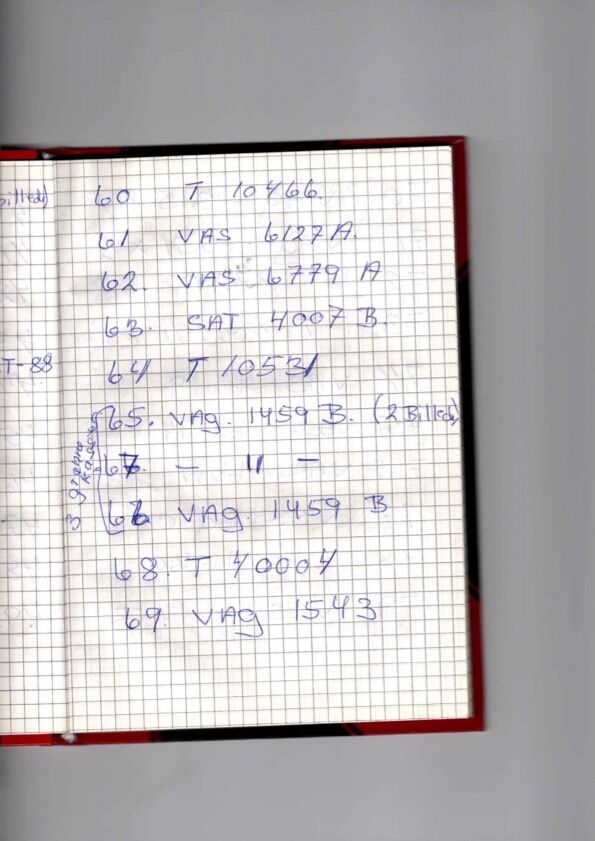 60 T 10466.
61 VAS 6127 A.
62. VAS 6779 A
63. SAT 4007 B.
64 T 10531
65. VAG. 1459 B. (2 Billed)
67. — " —
66 VAG. 1459 B
68. T 40004
69. VAG 1543
3 grønne
kasser
Billed)
T-88